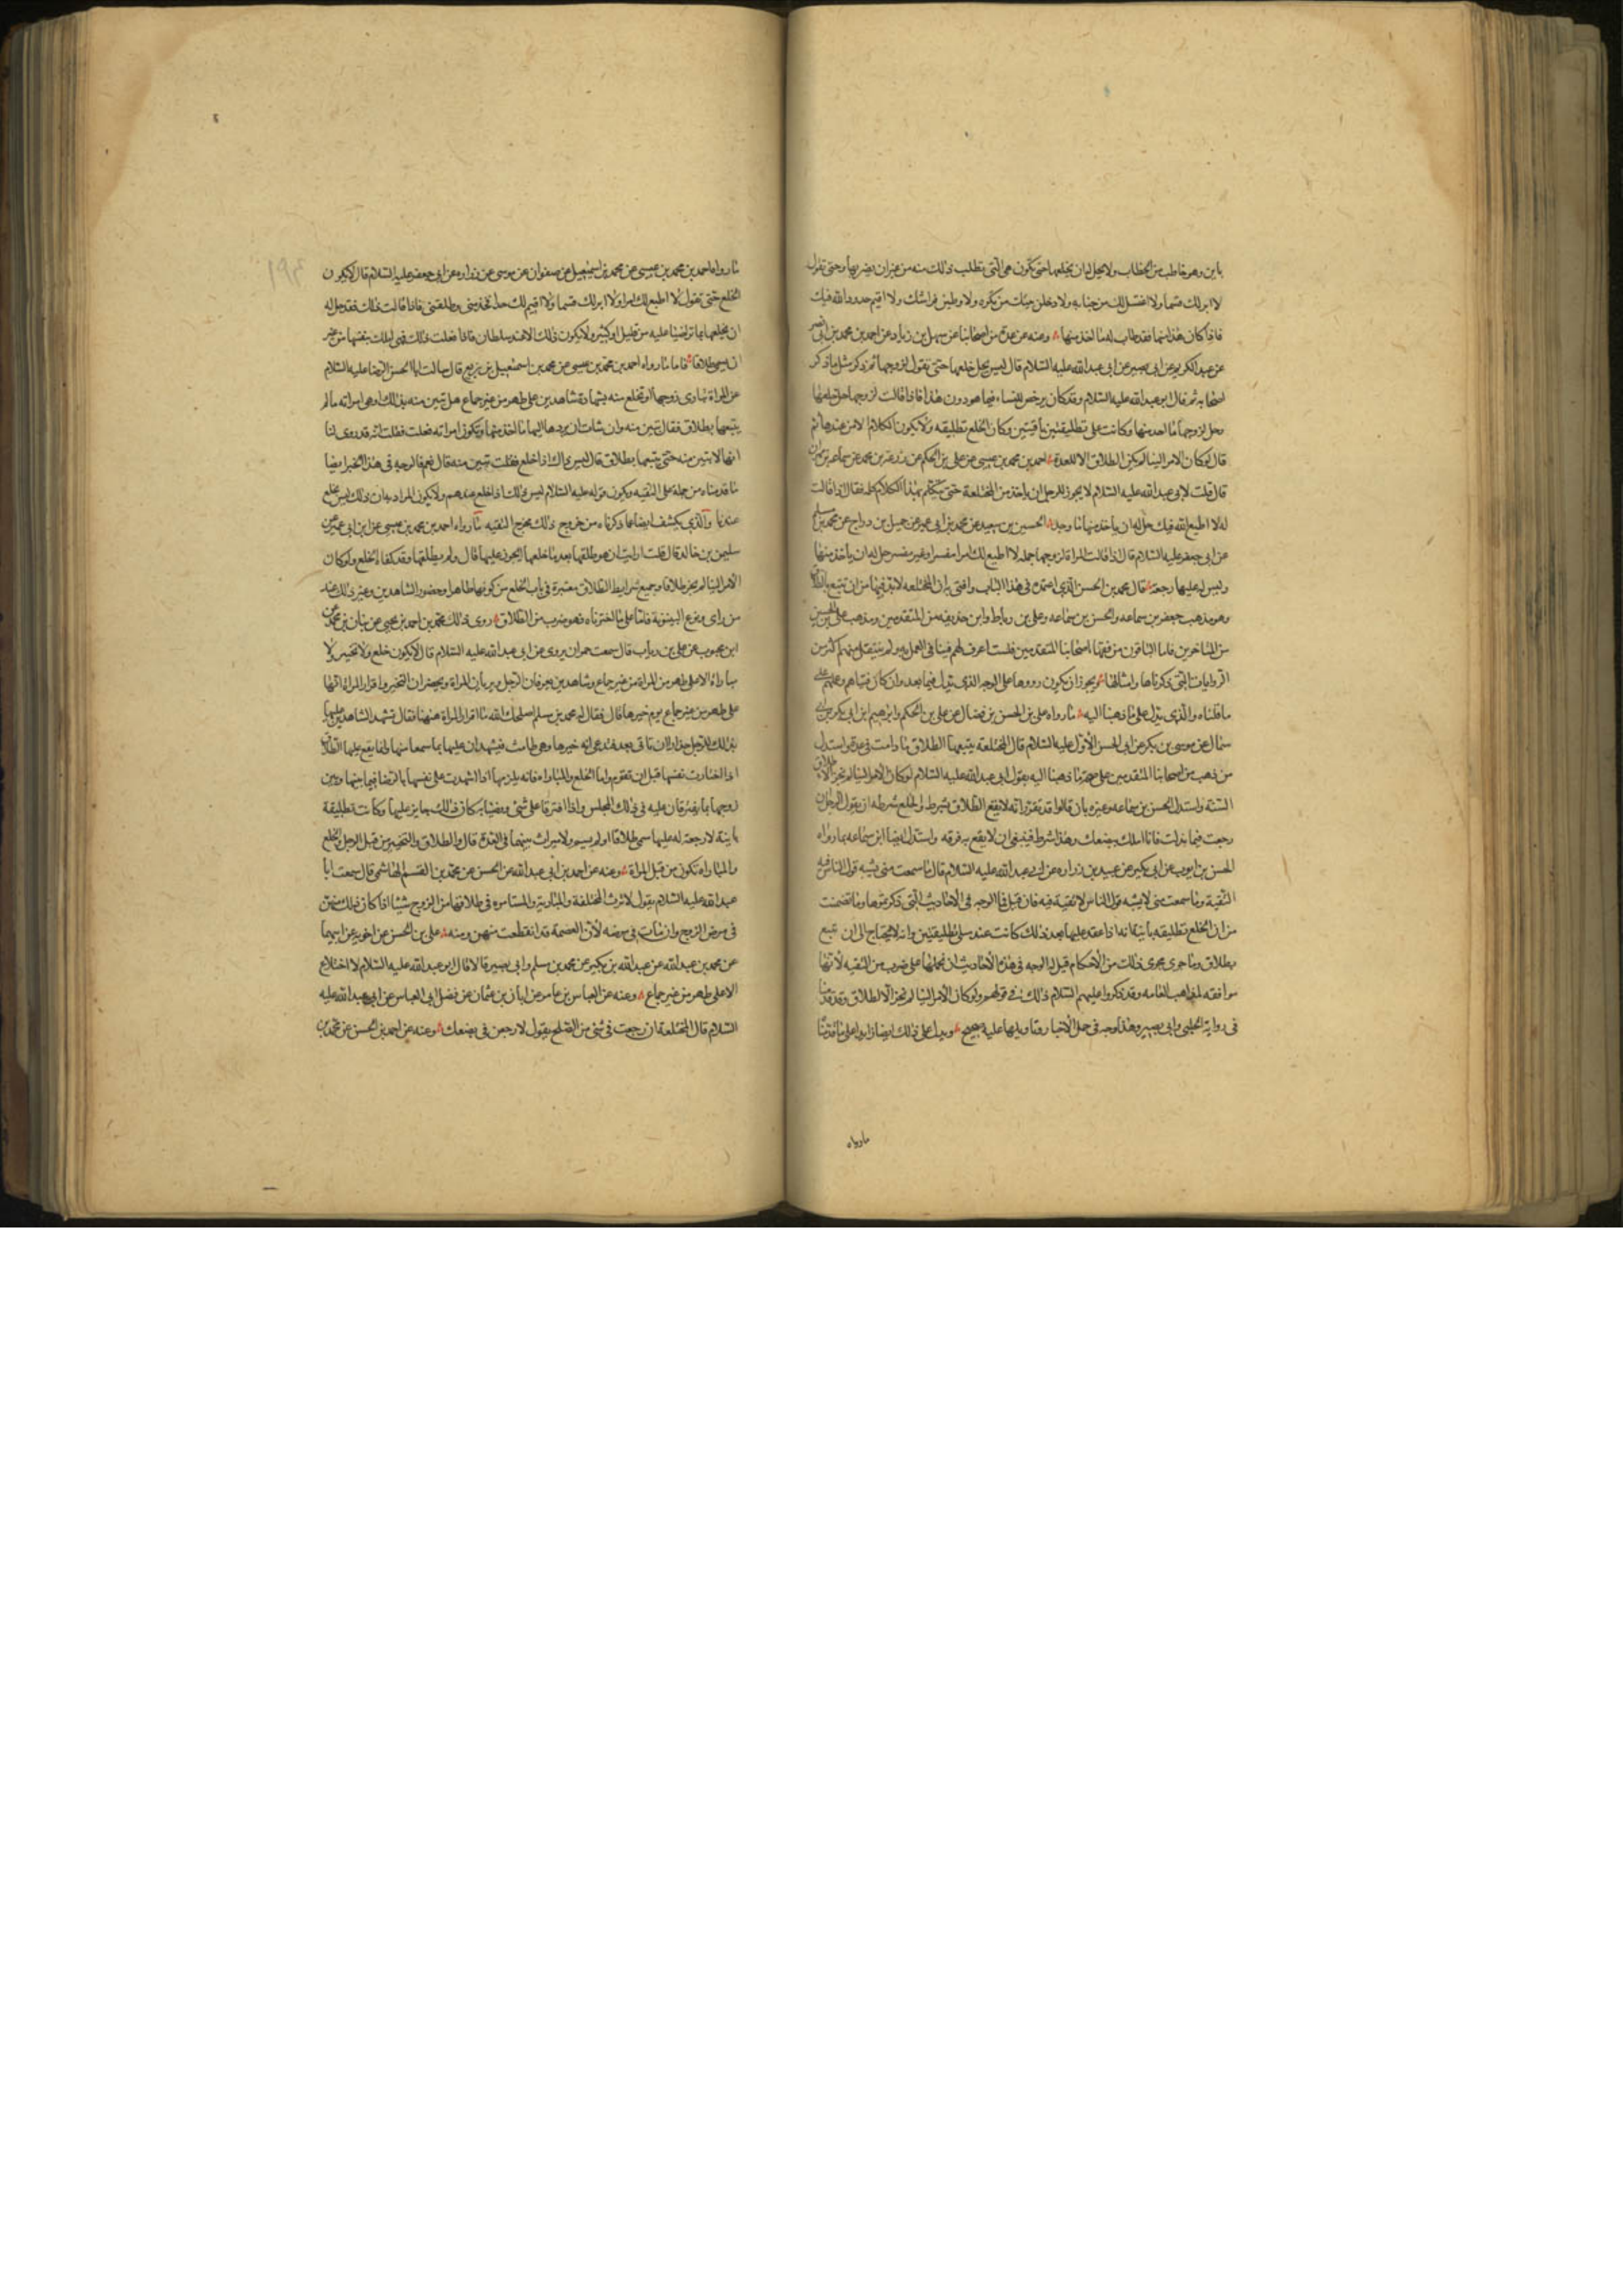 باين وهو خاطب من الخطاب ولا يحل له ان يخلعها حتى تكون هي التي تطلب ذلك منه من غير ان يضر بها وحتى تقول
لا ابر لك قسما ولا اغتسل لك من جنابه ولادخلن بيتك من تكره ولاوطين فراشك ولا اقيم حدود الله فيك
فاذا كان هذا منها فقد طاب له ما اخذ منها وعنه عن عدة من اصحابنا عن سهل بن زياد عن احمد بن محمد بن ابي نصر
عن عبد الكريم عن ابي بصير عن ابي عبد الله عليه السلام قال ليس يحل خلعها حتى تقول لزوجها ثم ذكر مثل ما ذكر
اصحابه ثم قال ابو عبد الله عليه السلام وقد كان يرخص للنساء فيما هو دون هذا فاذا قالت لزوجها حل خلعها
وحل لزوجها ما اخذ منها وكانت على تطليقتين باقيتين وكان الخلع تطليقه ولا يكون الكلام الا من عندها ثم
قال لو كان الامر الينا لم يكن الطلاق الا للعدة احمد بن محمد بن عيسى عن علي بن الحكم عن زرعه بن محمد عن سماعه بن مهران
قال قلت لابي عبد الله عليه السلام لا يجوز للرجل ان ياخذ من المختلعة حتى تتكلم بهذا الكلام كله فقال اذا قالت
له لا اطيع الله فيك حل له ان ياخذ منها ما وجد الحسين بن سعيد عن محمد بن ابي عمير عن جميل بن دراج عن محمد بن مسلم
عن ابي جعفر عليه السلام قال اذا قالت المراة لزوجها جملة لا اطيع لك امرا مفسرا وغير مفسر حل له ان ياخذ منها
وليس له عليها رجعة قال محمد بن الحسن الذي اعتمده في هذا الباب وافتي به ان المختلعه لا بد فيها من ان تتبع بالطلاق
وهو مذهب جعفر بن سماعه والحسن بن سماعه وعلي بن رباط وابن حذيفه من المتقدمين ومذهب علي بن الحسين
من المتاخرين فاما الباقون من فقهاء اصحابنا المتقدمين فلست اعرف لهم فتيا في العمل به ولم ينقل منهم اكثر من
الروايات التي ذكرناها وامثالها ويجوز ان يكون رووها على الوجه الذي نذكر فيما بعد وان كان فتياهم وعملهم على
ما قلناه والذي يدل على ما ذهبنا اليه ما رواه علي بن الحسن بن فضال عن علي بن الحكم وابرهيم ابن ابي بكر بن ابي
سمال عن موسى بن بكر عن ابي الحسن الاول عليه السلام قال المختلعة يتبعها الطلاق ما دامت في عدة واستدل
من ذهب من اصحابنا المتقدمين على صحة ما ذهبنا اليه بقول ابي عبد الله عليه السلام لو كان الامر الينا لم نجز الا طلاق
السنة واستدل الحسن بن سماعه وغيره بان قالوا قد تقرر انه لا يقع الطلاق بشرط والخلع بشرطه ان يقول الرجل ان
رجعت فيما بذلت فانا املك ببضعك وهذا شرط فينبغي ان لا يقع به فرقه واستدل ايضا ابن سماعه بما رواه
الحسن بن ايوب عن ابن بكير عن عبيد بن زراره عن ابي عبد الله عليه السلام قال ما سمعت مني يشبه قول الناس فيه
التقية وما سمعت مني لا يشبه قول الناس لا تقية فيه فان قيل فما الوجه في الاحاديث التي ذكرتموها وما تضمنت
من ان الخلع تطليقه باينة وانه اذا عقد عليها بعد ذلك كانت عنده على تطليقتين وانه لا يحتاج الى ان تتبع
بطلاق وما جرى مجرى ذلك من الاحكام قيل له الوجه في هذه الاحاديث ان نحملها على ضرب من التقيه لانها
موافقه لمذاهب العامه وقد ذكروا عليهم السلام ذلك في قولهم ولو كان الامر الينا لم نجز الا الطلاق وقد قدمنا
في رواية الحلبي وابي بصير وهذا وجه في حمل الاخبار وتاويلها عليه صحيح ويدل على ذلك ايضا زايدا على ما قدمنا
ما رواه
ما رواه احمد بن محمد بن عيسى عن محمد بن اسمعيل عن صفوان عن موسى عن زراره عن ابي جعفر عليه السلام قال لا يكون
الخلع حتى تقول لا اطيع لك امرا ولا ابر لك قسما ولا اقيم لك حدا فخذ مني وطلقني فاذا قالت ذلك فقد حل له
ان يخلعها بما تراضيا عليه من قليل او كثير ولا يكون ذلك الا عند سلطان فاذا فعلت ذلك فهي املك بنفسها من غير
ان يسمى طلاقا فاما ما رواه احمد بن محمد بن عيسى عن محمد بن اسمعيل بن بزيع قال سالت ابا الحسن الرضا عليه السلام
عن المراة تباري زوجها او تختلع منه بشهادة شاهدين على طهر من غير جماع هل تبين منه بذلك او هي امراته ما لم
يتبعها بطلاق فقال تبين منه وان شات ان يرد ها اليها ما اخذ منها وتكون امراته فعلت فقلت انه قد روى لنا
انها لا تبين منه حتى يتبعها بطلاق قال ليس ذاك اذا خلع فقلت تبين منه قال نعم فالوجه في هذا الخبر ايضا
ما قدمناه من حمله على التقيه ويكون قوله عليه السلام ليس ذلك اذا خلع عندهم ولا يكون المراد به ان ذلك ليس بخلع
عندنا والذي يكشف ايضا عما ذكرناه من خروج ذلك مخرج التقيه ما رواه احمد بن محمد بن عيسى عن ابن ابي عمير عن
سليمن بن خالد قال قلت ارايت ان هو طلقها بعد ما خلعها ايجوز عليها قال ولم يطلقها وقد كفاه الخلع ولو كان
الامر الينا لم نجز طلاقا وجميع شرايط الطلاق معتبرة في باب الخلع من كونها طاهرا وحضور الشاهدين وغير ذلك عند
من راى وقوع البينونة فاما على ما اخترناه فهو ضرب من الطلاق روى ذلك محمد بن احمد بن يحيى عن بنان بن محمد عن
ابن محبوب عن علي بن رياب قال سمعت حمران يروي عن ابي عبد الله عليه السلام قال لا يكون خلع ولا تخيير ولا
مباراة الا على طهر من المراة من غير جماع وشاهدين يعرفان الرجل ويريان المراة ويحضران التخيير واقرار المراة انها
على طهر من غير جماع يوم خيرها قال فقال له محمد بن مسلم اصلحك الله ما اقرار المراة ههنا فقال تشهد الشاهدين عليها
بذلك للرجل حذار ان تاتي بعد فتدعي انه خيرها وهي طامث فيشهدان عليها بما سمعا منها وانما يقع عليها الطلاق
اذا اختارت نفسها قبل ان تقوم واما الخلع والمباراه فانه يلزمها اذا اشهدت على نفسها بالرضا فيما بينها وبين
زوجها بما يفترقان عليه في ذلك المجلس واذا افترقا على شي ورضيا به كان ذلك جايز عليهما وكانت تطليقة
باينة لا رجعة له عليها سمى طلاقا او لم يسم ولا ميراث بينهما في العدة قال والطلاق والتخيير من قبل الرجل والخلع
والمباراه تكون من قبل المراة وعنه عن احمد بن ابي عبد الله عن الحسن عن محمد بن القسم الهاشمي قال سمعت ابا
عبد الله عليه السلام يقول لا ترث المختلعة والمبارية والمستامره في طلاقها من الزوج شيئا اذا كان ذلك منهن
في مرض الزوج وان مات في مرضه لان العصمة قد انقطعت منهن ومنه علي بن الحسن عن اخويه عن ابيهما
عن محمد بن عبد الله عن عبد الله بن بكير عن محمد بن مسلم وابي بصير قالا قال ابو عبد الله عليه السلام لا اختلاع
الا على طهر من غير جماع وعنه عن العباس بن عامر عن ابان بن عثمان عن فضل ابي العباس عن ابي عبد الله عليه
السلام قال المختلعة ان رجعت في شي من الصلح يقول لارجعن في بضعك وعنه عن احمد بن الحسن عن محمد بن